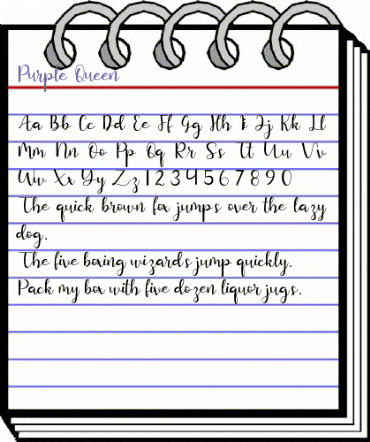 Purple Queen
Aa Bb Cc Dd Ee Ff Gg Hh Ii Jj Kk Ll
Mm Nn Oo Pp Qq Rr Ss Tt Uu Vv
Ww Xx Yy Zz 1 2 3 4 5 6 7 8 9 0
The quick brown fox jumps over the lazy
dog.
The five boxing wizards jump quickly.
Pack my box with five dozen liquor jugs.